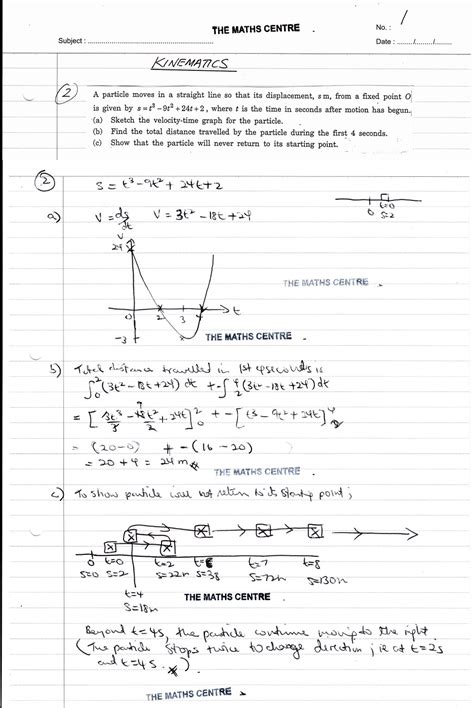 THE MATHS CENTRE .
No. : 1
Subject : ....................
Date : ......./......./.......
KINEMATICS
2 A particle moves in a straight line so that its displacement, s m, from a fixed point O
is given by s = t³ – 9t² + 24t + 2, where t is the time in seconds after motion has begun.
(a) Sketch the velocity-time graph for the particle.
(b) Find the total distance travelled by the particle during the first 4 seconds.
(c) Show that the particle will never return to its starting point.
2 s = t³ – 9t² + 24t + 2
t=0
0 s=2
a) V = ds/dt V = 3t² – 18t + 24
V
24
THE MATHS CENTRE .
0 2 3 4 t
–3
THE MATHS CENTRE .
b) Total distance travelled in 1st 4 seconds is
∫₀² (3t² – 18t + 24) dt + – ∫₂⁴ (3t² – 18t + 24) dt
= [3t³/3 – 18t²/2 + 24t]₀² + – [t³ – 9t² + 24t]₂⁴
= (20–0) + – (16 – 20)
= 20 + 4 = 24 m
THE MATHS CENTRE .
c) To show particle will not return to its starting point ;
0 t=0 t=2 t=6 t=7 t=8
s=0 s=2 s=22m s=38 s=72m s=130m
t=4
s=18m
THE MATHS CENTRE .
Beyond t=4s, the particle continue moving to the right.
(The particle stops twice to change direction ; ie at t=2s
and t=4s. )
THE MATHS CENTRE .